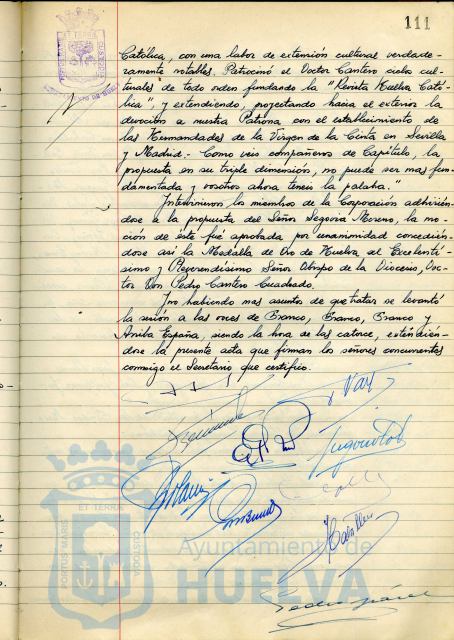 111
ET TERRA
CUSTODIA
Católica, con una labor de extensión cultural verdade-
ramente notables. Patrocinó el Doctor Cantero ciclos cul-
turales de todo orden fundando la "Revista Huelva Cató-
lica", y extendiendo, proyectando hacia el exterior la
devoción a nuestra Patrona con el establecimiento de
las Hermandades de la Virgen de la Cinta en Sevilla
y Madrid.- Como veis compañeros de Capítulo, la
propuesta en su triple dimensión, no puede ser mas fun-
damentada y vosotros ahora teneis la palabra."
Intervinieron los miembros de la Corporación adhirién-
dose a la propuesta del Señor Segovia Moreno, la mo-
ción de éste fué aprobada por unanimidad concedién-
dose así la Medalla de Oro de Huelva al Excelentí-
simo y Reverendísimo Señor Obispo de la Diocesis, Doc-
tor Don Pedro Cantero Cuadrado.
Y no habiendo mas asuntos de que tratar se levantó
la sesión a las voces de Franco, Franco, Franco y
Arriba España, siendo la hora de las catorce, extendién-
dose la presente acta que firman los señores concurrentes
conmigo el Secretario que certifico.
PORTUS MARIS
ET TERRA
CUSTODIA
Ayuntamiento de
HUELVA